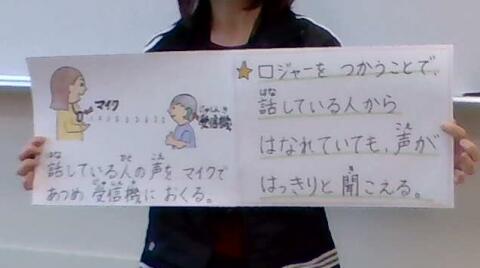 マイク
じゅしんき
受信機
はな ひと こえ
話している人の声をマイクで
じゅしんき
あつめ 受信機に おくる。
☆ロジャーを つかうことで、
はな
話している人から
こえ
はなれていても、声が
き
はっきりと 聞こえる。